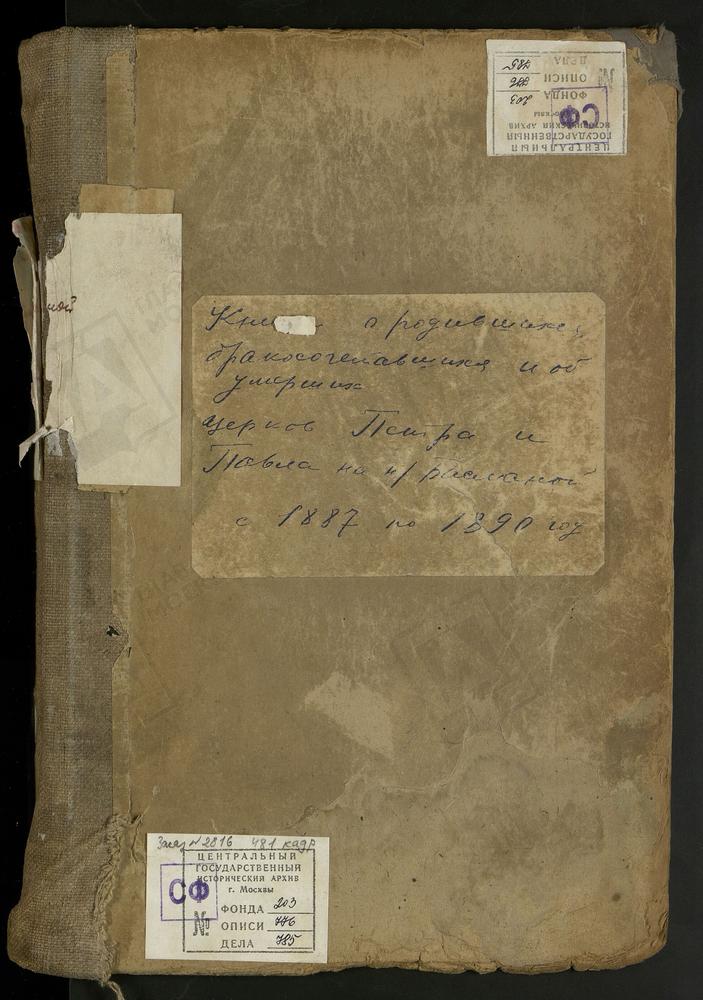 ЦЕНТРАЛЬНЫЙ
ГОСУДАРСТВЕННЫЙ
ИСТОРИЧЕСКИЙ АРХИВ
г. Москвы
СФ
ФОНДА 203
№ ОПИСИ 776
ДЕЛА 785
ной
о родившихся,
бракосочетавшихся и об
умерших
церков Петра и
Павла на н/Басманной
с 1887 по 1890 год
Заказ № 2816 481 кадр
ЦЕНТРАЛЬНЫЙ
ГОСУДАРСТВЕННЫЙ
ИСТОРИЧЕСКИЙ АРХИВ
г. Москвы
СФ
ФОНДА 203
№ ОПИСИ 776
ДЕЛА 785